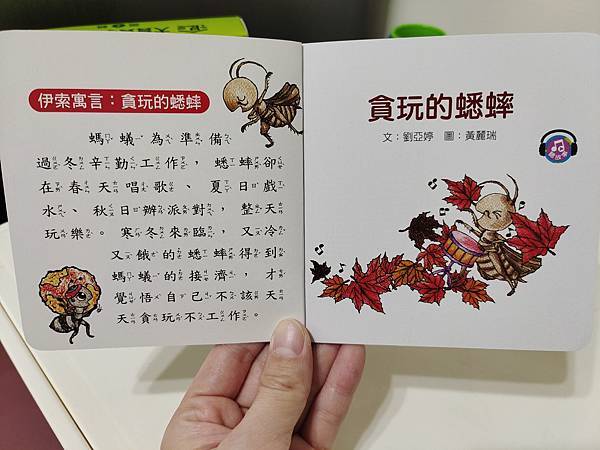 伊索寓言：貪玩的蟋蟀
螞蟻為準備
過冬辛勤工作，蟋蟀卻
在春天唱歌、夏日戲
水、秋日辦派對，整天
玩樂。寒冬來臨，又冷
又餓的蟋蟀得到
螞蟻的接濟，才
覺悟自己不該天
天貪玩不工作。
貪玩的蟋蟀
文：劉亞婷 圖：黃麗瑞
聽故事